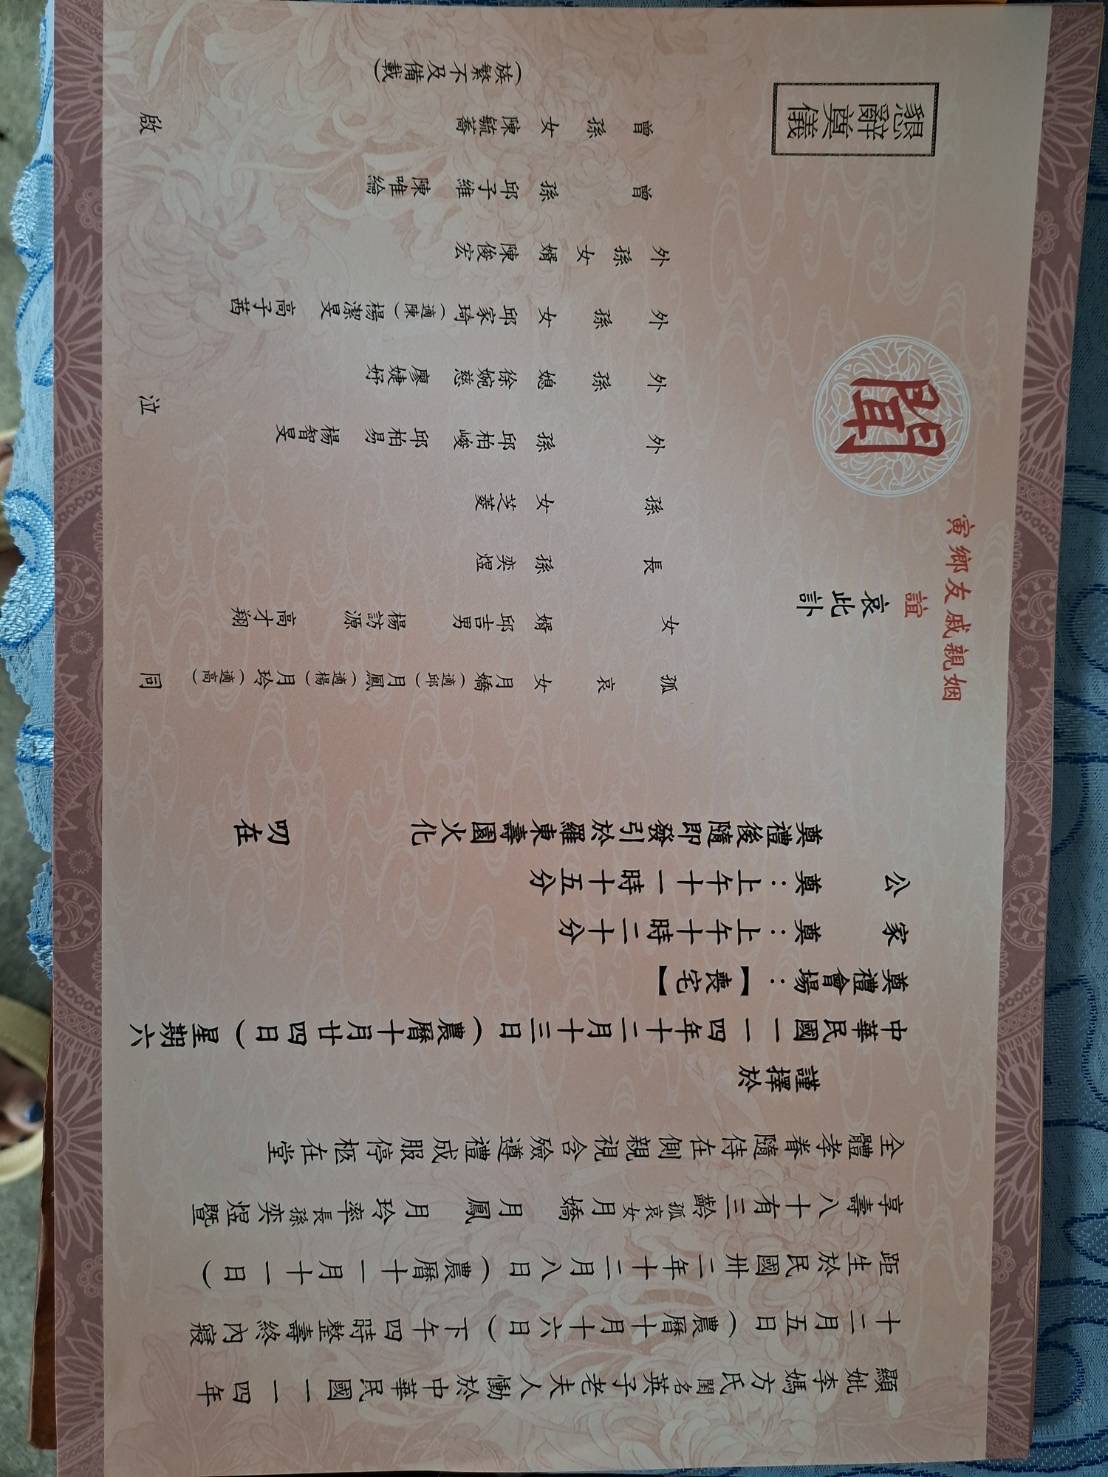 顯妣李媽方氏閨名英子老夫人慟於中華民國一一四年
十二月五日（農曆十月十六日）下午四時整壽終內寢
距生於民國卅二年十二月八日（農曆十一月十一日）
享壽八十有三齡孤哀女月嬌 月鳳 月玲率長孫奕煜暨
全體孝眷隨侍在側親視含殮遵禮成服停柩在堂
謹擇於
中華民國一一四年十二月十三日（農曆十月廿四日）星期六
奠禮會場：【喪宅】
家奠：上午十時二十分
公奠：上午十一時十五分
奠禮後隨即發引於羅東壽園火化 叨在
寅鄉友戚親姻
誼
哀此訃
聞
孤哀女 月嬌（適邱） 月鳳（適楊） 月玲（適高）
女婿 邱吉男 楊訪源 高才翔
長孫 奕煜
孫女 芝菱
外孫 邱柏峻 邱柏易 楊智旻
外孫媳 徐婉慈 廖婕妤
外孫女 邱家琦（適陳） 楊潔旻 高子茜
外孫女婿 陳俊宏
曾孫 邱子維 陳唯綸
曾孫女 陳毓蕎
（族繁不及備載）
同泣啟
懇辭奠儀